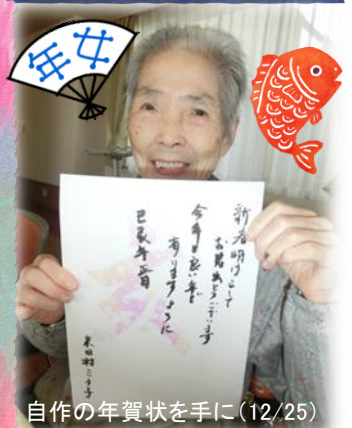 年女
新春明けまして
とうございます
今年も良い年で
ありますように
自作の年賀状を手に(12/25)